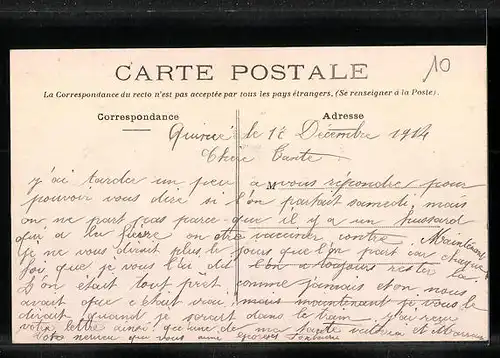 CARTE POSTALE
10
La Correspondance du recto n'est pas acceptée par tous les pays étrangers. (Se renseigner à la Poste).
Correspondance
Adresse
le 12 Décembre 1914
Chère Tante
M
j'ai tarder un peu a vous répondre pour
pouvoir vous dire si l'on partait samedi mais
on ne part pas parce que il y a un hussard
qui a la fièvre on être vacciner contre. Maintenant
je ne vous dirait plus le jours que l'on part car chaque
fois que je vous l'ai di l'on a toujours rester la
l'on était tout prêt comme jamais et on nous
avait que c'était vrai mais maintenant je vous le
dirait quand je serait dans le train. j'ai reçu
votre lettre ainsi que une de ma tante et
Votre neveu que vous aime